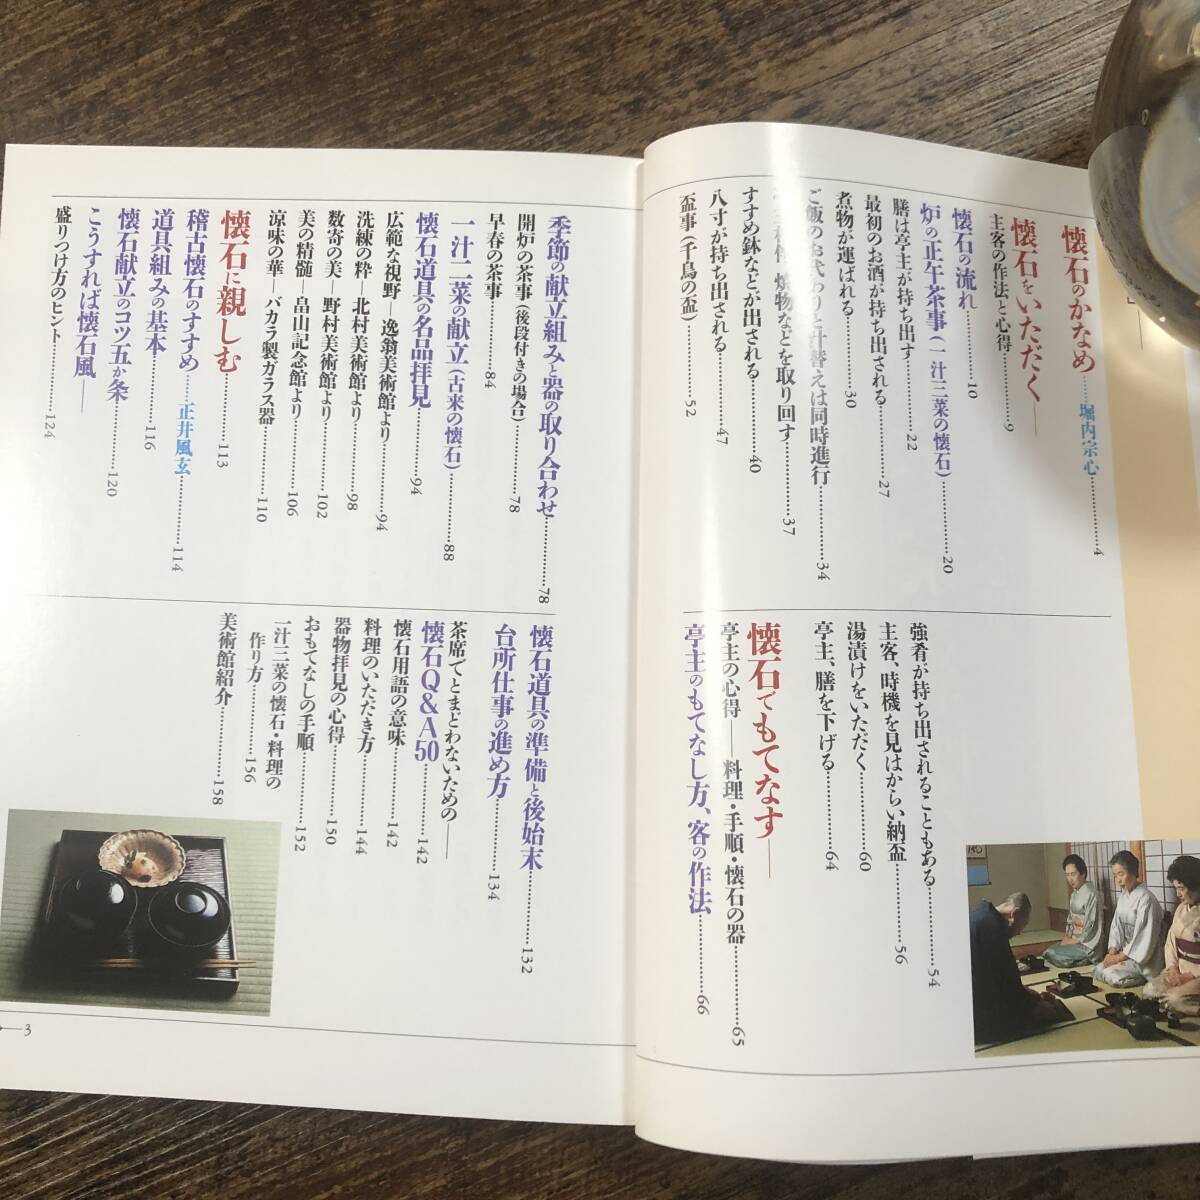 懐石のかなめ……堀内宗心……4
懐石をいただく——
主客の作法と心得……9
懐石の流れ……10
炉の正午茶事（一汁三菜の懐石）……20
膳は亭主が持ち出す……22
最初のお酒が持ち出される……27
煮物が運ばれる……30
ご飯のお代わりと汁替えは同時進行……34
焼物などを取り回す……37
すすめ鉢などが出される……40
八寸が持ち出される……47
盃事（千鳥の盃）……52
強肴が持ち出されることもある……54
主客、時機を見はからい納盃……56
湯漬けをいただく……60
亭主、膳を下げる……64
懐石でもてなす——
亭主の心得——料理・手順・懐石の器……65
亭主のもてなし方、客の作法……66
季節の献立組みと器の取り合わせ……78
開炉の茶事（後段付きの場合）……78
早春の茶事……84
一汁二菜の献立（古来の懐石）……88
懐石道具の名品拝見……94
広範な視野—逸翁美術館より……94
洗練の粋—北村美術館より……98
数奇の美—野村美術館より……102
美の精髄—畠山記念館より……106
涼味の華—バカラ製ガラス器……110
懐石に親しむ……113
稽古懐石のすすめ……正井風玄……114
道具組みの基本……116
懐石献立のコツ五か条……120
こうすれば懐石風——
盛りつけ方のヒント……124
懐石道具の準備と後始末……132
台所仕事の進め方……134
茶席でとまどわないための——
懐石Q&A50……142
懐石用語の意味……142
料理のいただき方……144
器物拝見の心得……150
おもてなしの手順……152
一汁三菜の懐石・料理の
作り方……156
美術館紹介……158
3